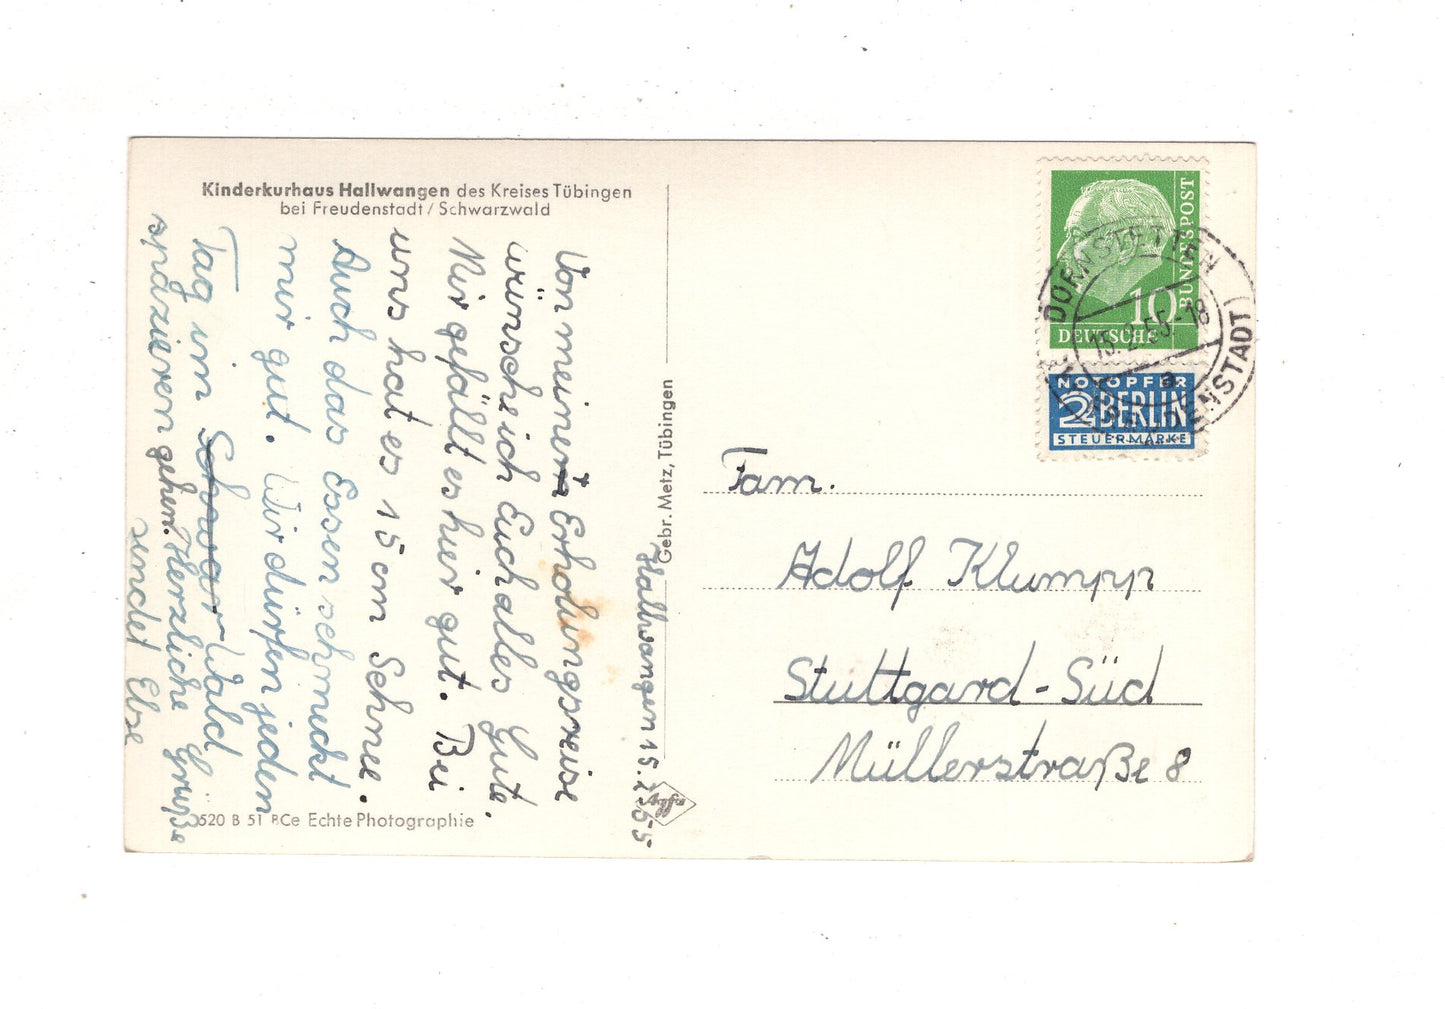 Kinderkurhaus Hallwangen des Kreises Tübingen
bei Freudenstadt / Schwarzwald
Hallwangen 15.2.55
Von meiner Erholungsreise
wünsche ich Euch alles Gute.
Mir gefällt es hier gut. Bei
uns hat es 15 cm Schnee.
Auch das Essen schmeckt
mir gut. Wir dürfen jeden
Tag im Schwar Wald
spazieren gehen. Herzliche Grüße
sendet Else
520 B 51 BCe Echte Photographie
Gebr. Metz, Tübingen
Agfa
DEUTSCHE
BUNDESPOST
10
NOTOPFER
2 BERLIN
STEUERMARKE
DORNSTETTEN
15.2.55-18
a
(KR. FREUDENSTADT)
Fam.
Adolf Klumpp
Stuttgard-Süd
Müllerstraße 8